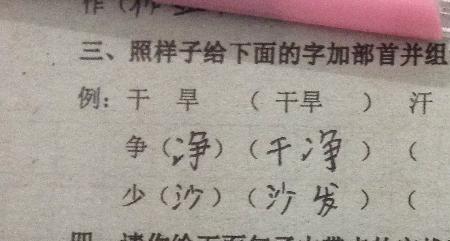 作（
三、照样子给下面的字加部首并组
例：干 旱 （ 干旱 ） 汗
争（净）（干净）（
少（沙）（沙发）（
四